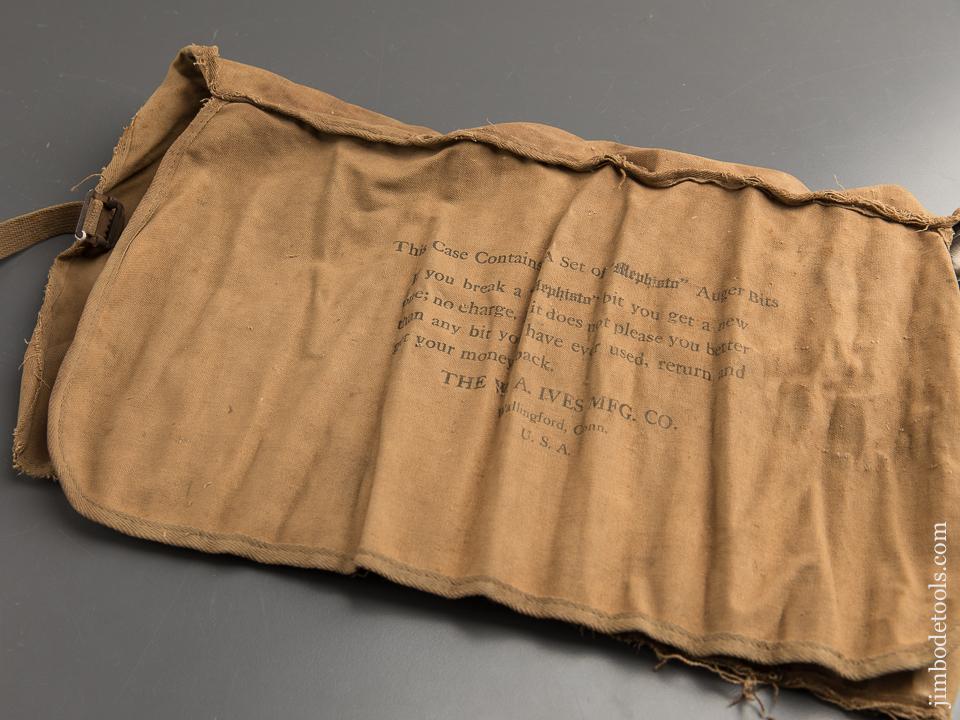 This Case Contains A Set of "Mephisto" Auger Bits
If you break a "Mephisto" bit you get a new
one; no charge. If it does not please you better
than any bit you have ever used, return and
get your money back.
THE W. A. IVES MFG. CO.
Wallingford, Conn.
U. S. A.
jimbodetools.com